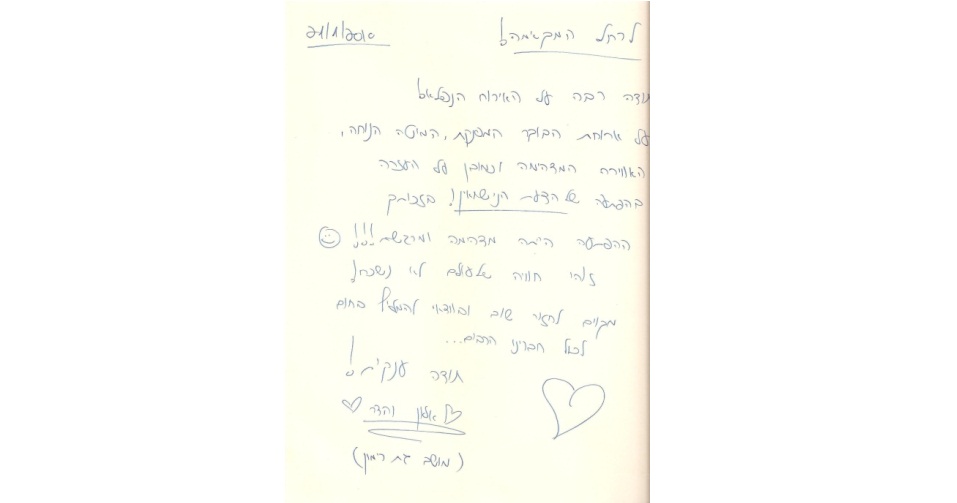 21/1/2010
לרחל המקסימה!
תודה רבה על האירוח הנפלא!
על ארוחת הבוקר המפנקת, המיטה הנוחה,
האווירה המדהימה וכמובן על העזרה
בהפתעה של הצעת הנישואין! בזכותך
ההפתעה הייתה מדהימה ומרגשת!!!
זוהי חוויה שלעולם לא נשכח!
מקווים לחזור שוב ובוודאי להמליץ בחום
לכל חברינו הרבים...
תודה ענקית!
אלון והדר
(מושב גת רימון)